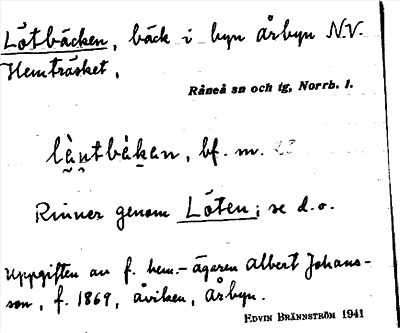 Lötbäcken, bäck i byn Årbyn N.V.
Hemträsket.
Råneå sn och tg, Norrb. l.
bf. m. 23
Rinner genom Löten; se d.o.
Uppgiften av f. hem.-ägaren Albert Johans-
son, f. 1869, Åviken, Årbyn.
EDVIN BRÄNNSTRÖM 1941